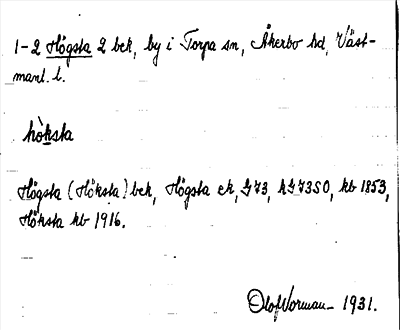 1-2 Högsta 2 bek, by i Torpa sn, Åkerbo hd, Väst-
manl. l.
hò̀ksta
Högsta (Höksta) bek, Högsta ek, G73, hG73SO, kb 1853,
Höksta kb 1916.
Olof Norman 1931.